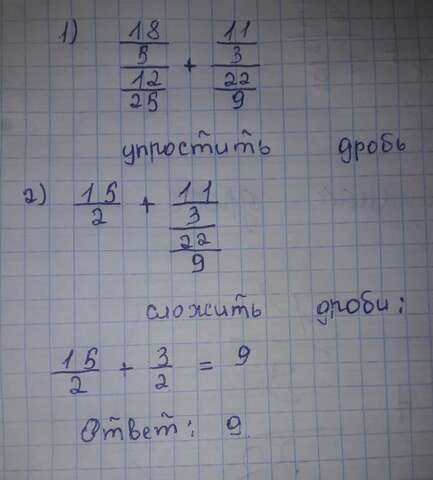 1) 18/5/12/25 + 11/3/22/9
упростить дробь
2) 15/2 + 11/3/22/9
сложить дроби:
15/2 + 3/2 = 9
Ответ: 9